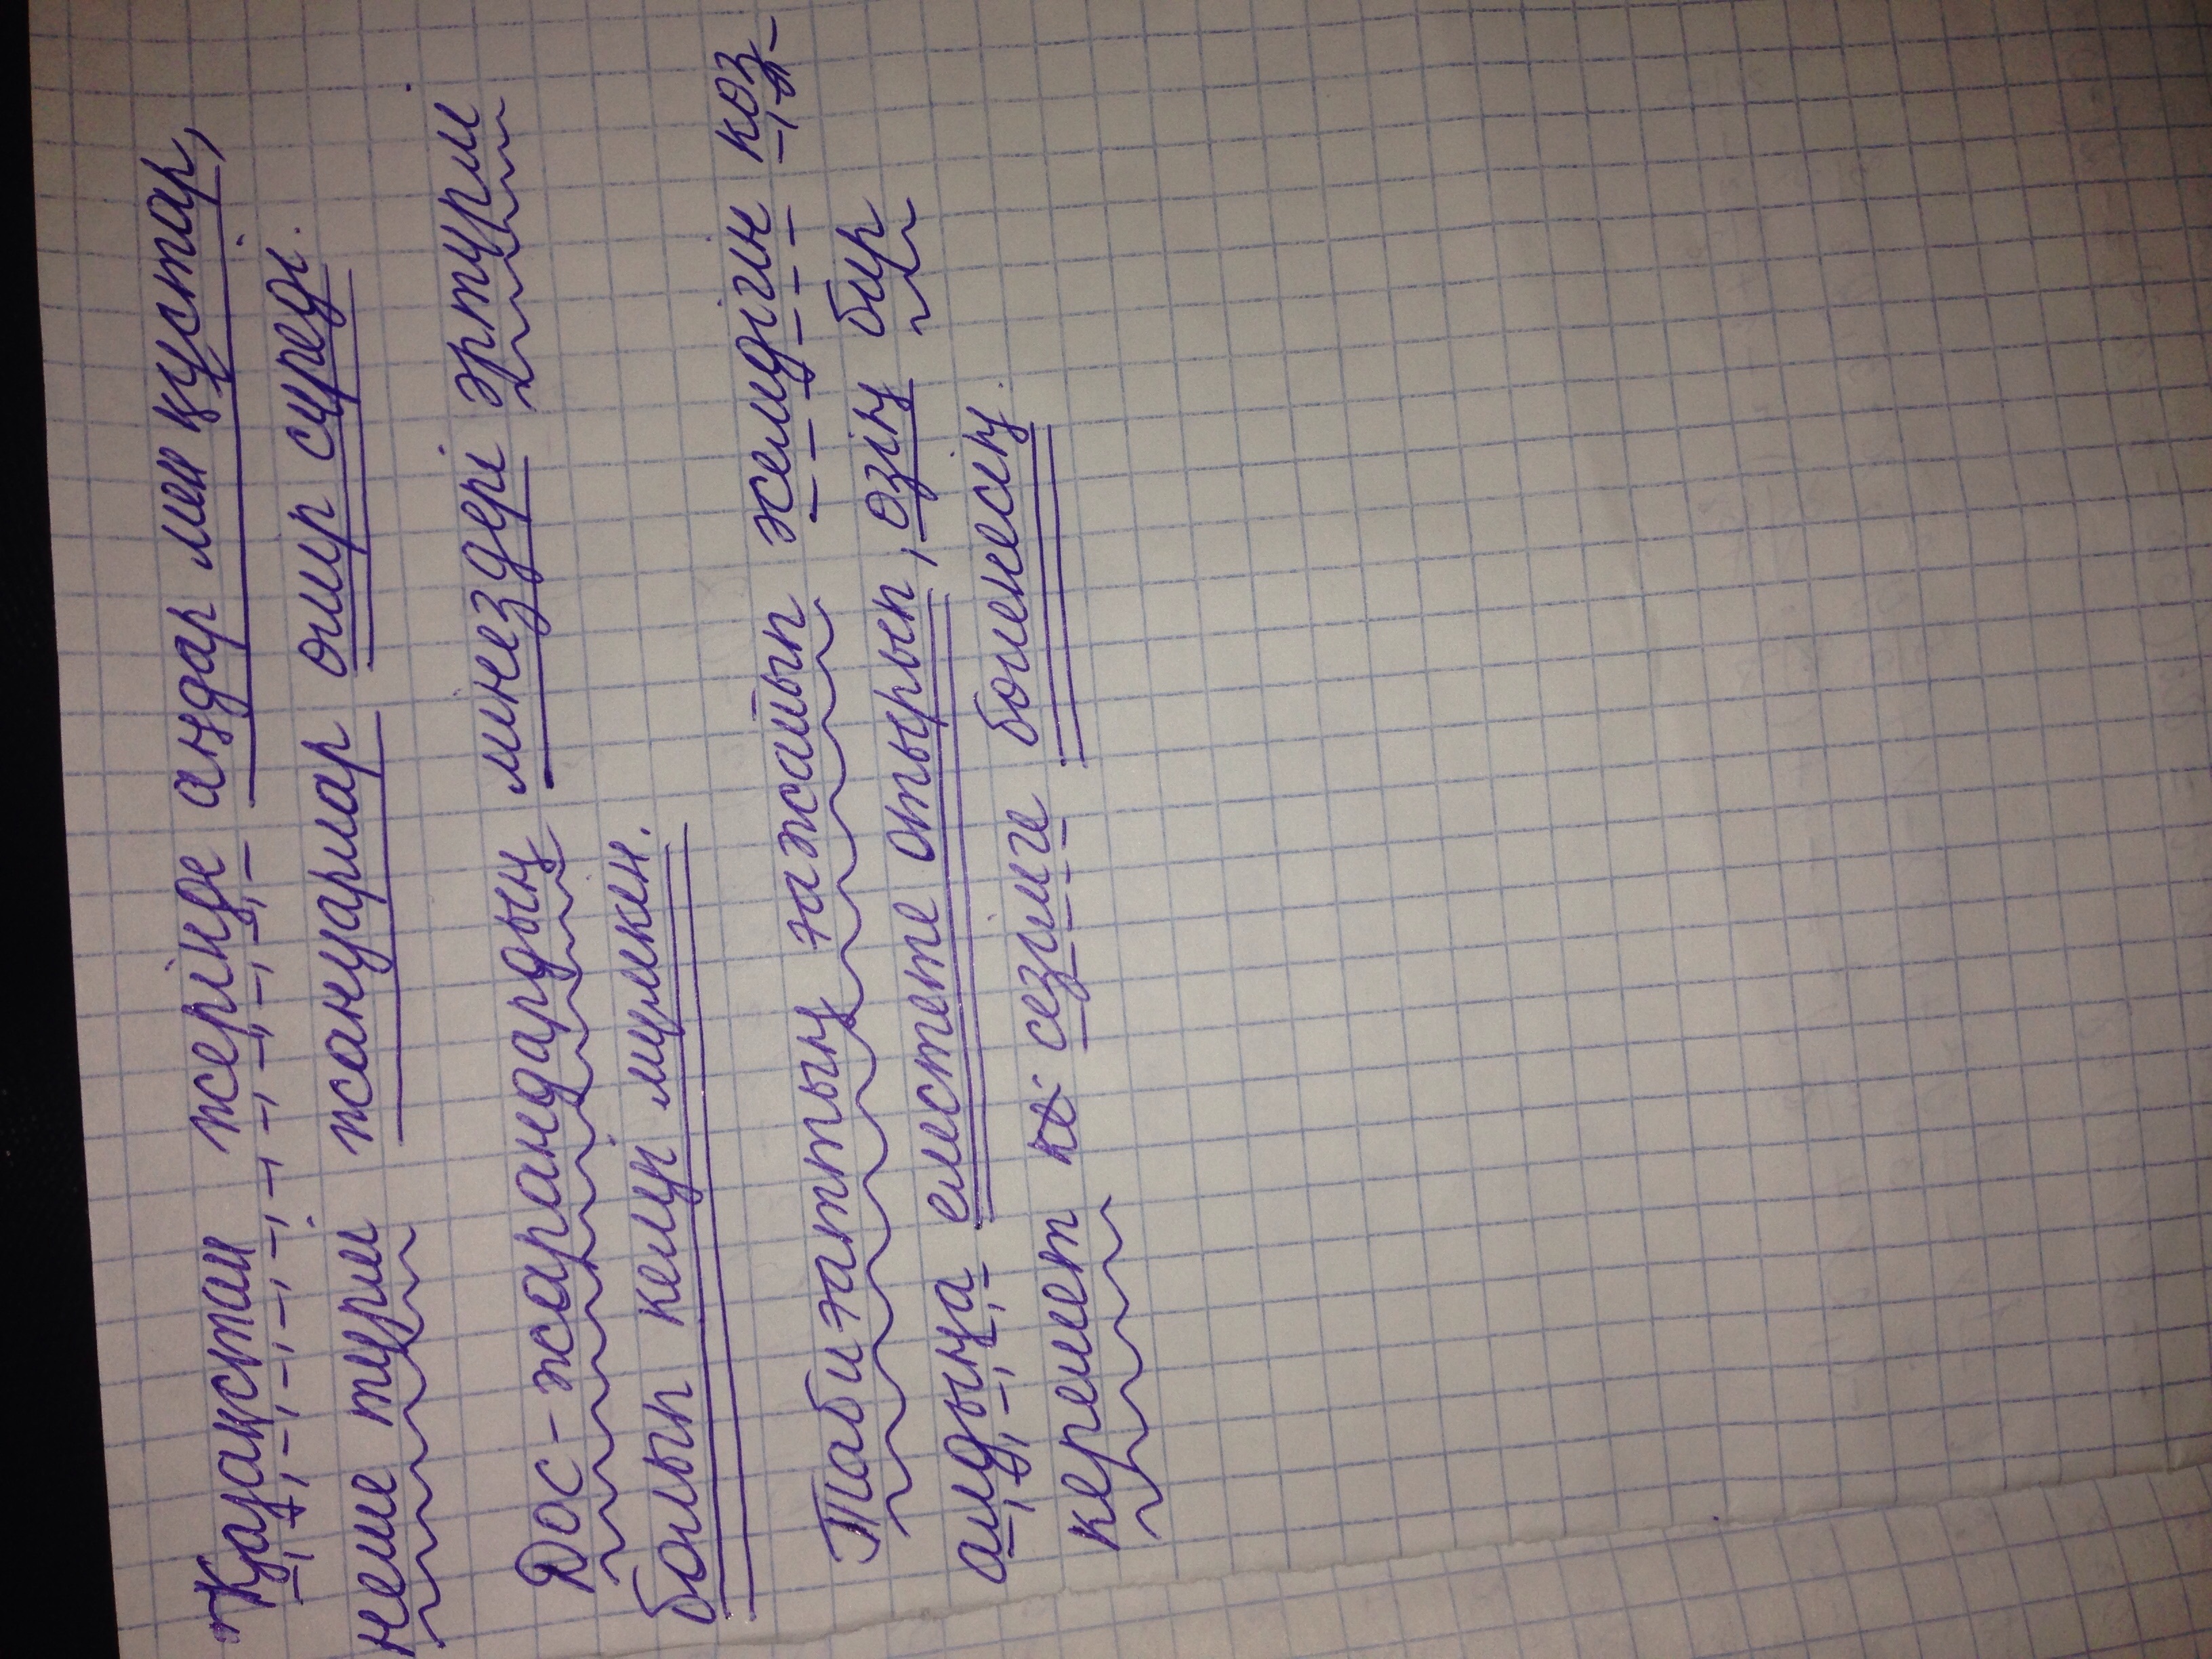 Қазақстан жерінде аңдар мен құстар,
неше түрлі жануарлар өмір сүреді.
Дос-жарандардың мінездері әртүрлі
болып келуі мүмкін.
Табиғаттың ғажайып желдігін көз
алдыңа елестете отырып, өзің бір
керемет сезімге бөленесің.